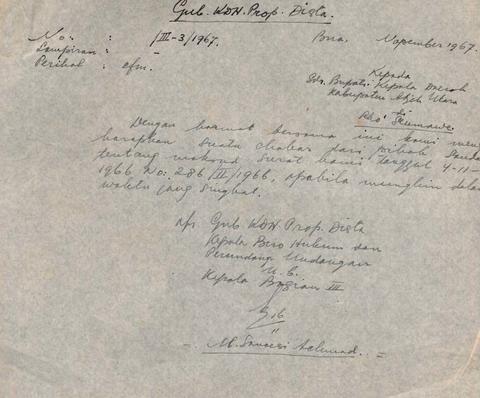 Gub. KDH. Prop. Dista.
No. : /III-3/1967. Bna, Nopember 1967.
Lampiran : –
Perihal : cfm. Kepada
Sdr. Bupati Kepala Daerah
Kabupaten Atjeh Utara
Dengan hormat bersama ini kami meng
harapkan suatu chabar dari pihak Sauda
tentang maksud surat kami tanggal 4-11-
1966 No: 286/II/1966, apabila mungkin dalam
waktu jang singkat.
Gub. KDH. Prop. Dista
Kepala Biro Hukum dan
Perundang Undangan
u.b.
Kepala Bagian III
- M. Achmad. -